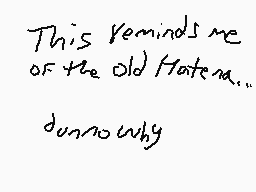 This reminds me
of the old Hatena...
dunno why